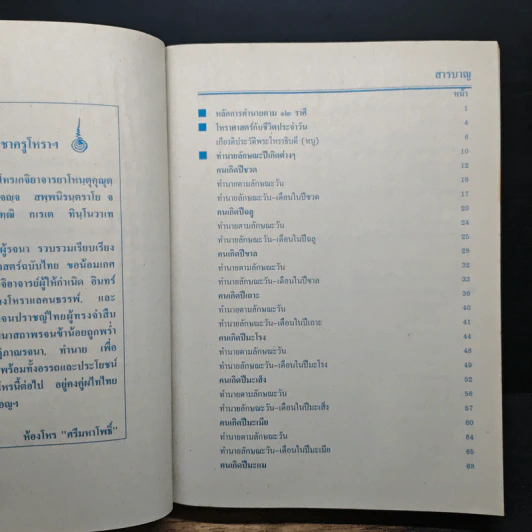 ชาครูโหราฯ
โหรเกจิอาจารยาโหนฺตุคุณุต
สพฺพนิรนฺตราโย จ
ทฺฒิ กเรเต ทินฺโนวาเท
ผู้รจนา รวบรวมเรียบเรียง
าสตร์ฉบับไทย ขอน้อมเกศ
จิอาจารย์ผู้ให้กำเนิด อินทร์
งโหราแลคนธรรพ์, และ
จนปราชญ์ไทยผู้ทรงจำสืบ
นาสถาพรจนช้าน้อยถูกพร่ำ
ภิาณรจนา, ทำนาย เพื่อ
พร้อมทั้งอรรถและประโยชน์
โหรนี้ต่อไป อยู่คงคู่ฝไทไทย
อญฯ
ห้องโหร "ศรีมหาโพธิ์"
สารบาญ
หน้า
หลักการทำนายตาม ๑๒ ราศี 1
โหราศาสตร์กับชีวิตประจำวัน 4
เกียรติประวัติพระโหราธิบดี (หนู) 6
ทำนายลักษณะปีเกิดต่างๆ 10
คนเกิดปีชวด 12
ทำนายตามลักษณะวัน 16
ทำนายลักษณะวัน-เดือนในปีชวด 17
คนเกิดปีฉลู 20
ทำนายตามลักษณะวัน 24
ทำนายลักษณะวัน-เดือนในปีฉลู 25
คนเกิดปีขาล 29
ทำนายตามลักษณะวัน 32
ทำนายลักษณะวัน-เดือนในปีขาล 33
คนเกิดปีเถาะ 36
ทำนายตามลักษณะวัน 40
ทำนายลักษณะวัน-เดือนในปีเถาะ 41
คนเกิดปีมะโรง 44
ทำนายตามลักษณะวัน 48
ทำนายลักษณะวัน-เดือนในปีมะโรง 49
คนเกิดปีมะเส็ง 52
ทำนายตามลักษณะวัน 56
ทำนายลักษณะวัน-เดือนในปีมะเส็ง 57
คนเกิดปีมะเมีย 60
ทำนายตามลักษณะวัน 64
ทำนายลักษณะวัน-เดือนในปีมะเมีย 65
คนเกิดปีมะแม 68